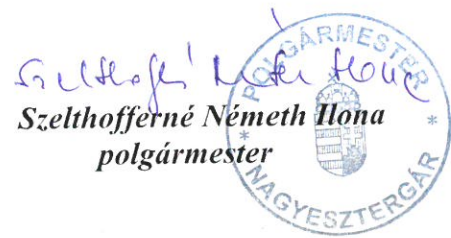 Szelthofferné Németh Ilona
polgármester
POLGÁRMESTER
* NAGYESZTERGÁR *